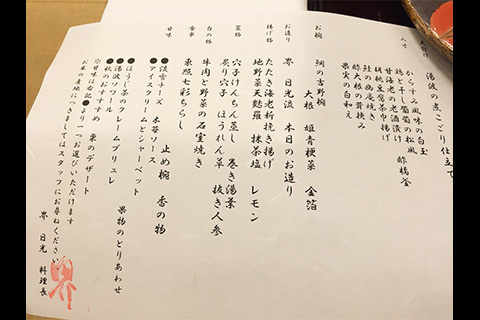 先付け
湯波の煮こごり仕立て
八寸
からすみ風味の白玉
鶏と干し葡萄の松風　酢橘釜
甘海老の老酒漬け
胡桃豆腐茶巾揚げ
鮭の幽庵焼き
酢大根の茸挟み
果実の白和え
お椀
鯛の吉野椀
大根　姫青梗菜　金箔
お造り
界　日光流　本日のお造り
揚げ物
たたき海老祈挽き揚げ
地野菜天麩羅　抹茶塩　レモン
蓋物
穴子けんちん蒸し　巻き湯葉
炙り穴子　ほうれん草　抜き人参
台の物
牛肉と野菜の石室焼き
食事
東照七彩ちらし
止め椀　香の物
甘味
●淡雪チーズ　木苺ソース
●アイスクリームとシャーベット
果物のとりあわせ
●ほうじ茶のクレームブリュレ
●湯波アール
●秋のおすすめ　栗のデザート
※甘味は右記●より一つお選びいただけます
お米の産地につきましてはスタッフにお尋ねください。
界　日光　料理長
界